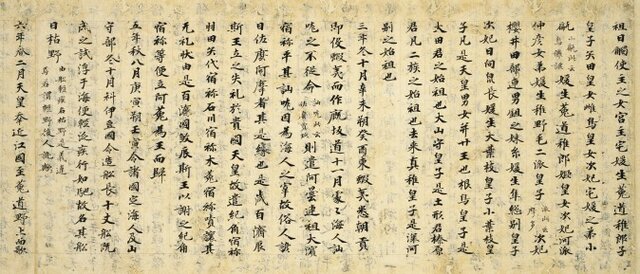 祖日觸使主之女宮主宅媛生菟道稚郎子
皇子矢田皇女雌鳥皇女次妃宅媛之弟小
甂媛生菟道稚郎姬皇女次妃河派
仲彥女弟媛生稚野毛二派皇子 次妃
櫻井田部連男鉏之妹糸媛生隼総別皇子
次妃日向泉長媛生大葉枝皇子小葉枝皇
子凡是天皇男女并廿王也根鳥皇子是
大田君之始祖也大山守皇子是土形君榛原
君凡二族之始祖也去來真稚皇子是深河
別之始祖也
三年冬十月辛未朔癸酉東蝦夷悉朝貢
即役蝦夷而作厩坂道十一月處々海人訕
哤之不從命 則遣阿曇連祖大濱
宿祢平其訕哤因爲海人之宰故俗人諺
曰佐麼阿摩者其是緣也是歲百濟辰
斯王立之失礼於貴國天皇故遣紀角宿祢
羽田矢代宿祢石川宿祢木菟宿祢嘖讓其
无礼狀由是百濟國敦辰斯王以謝之紀角
宿祢等便立阿菟爲王而歸
五年秋八月庚寅朔壬寅令諸國定海人及山
守部冬十月科伊豆國令造船長十丈船既
成之試浮于海便輕泛疾行如馳故名其船
曰枯野 由船輕疾名枯野是義違
焉若謂輕野後人訛歟
六年春二月天皇幸近江國至菟道野上而歌